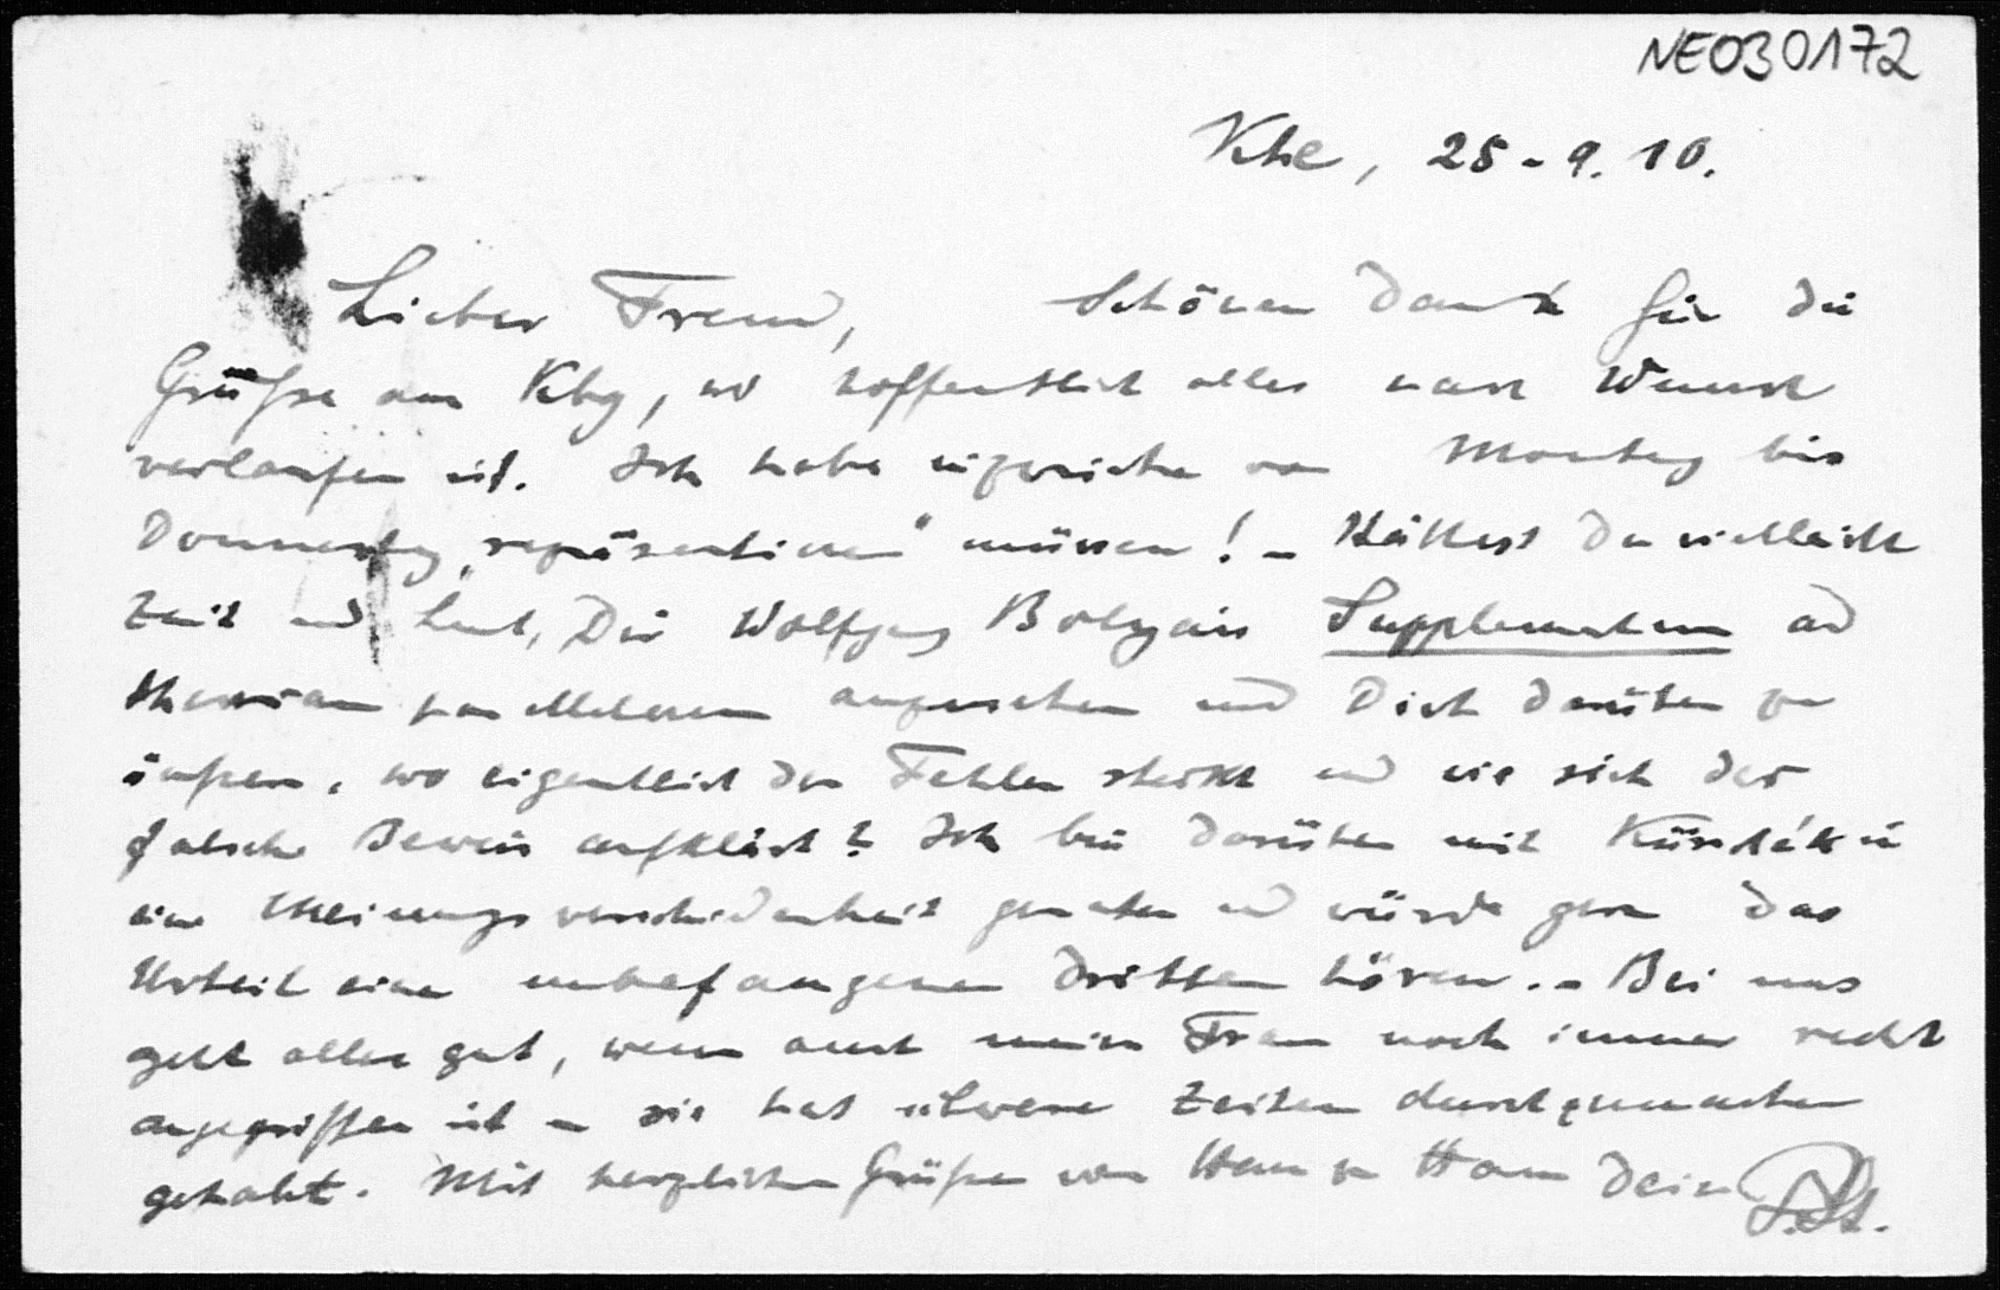 NE030172
Khe, 25-9.10.
Lieber Freund, Schönen Dank für die
Grüße aus Kbg, wo hoffentlich alles nach Wunsch
verlaufen ist. Ich habe inzwischen von Montag bis
Donnerstag „repräsentieren" müssen! – Hättest Du vielleicht
Zeit und Lust, Dir Wolfgang Bolyais Supplementum ad
theoriam parallelarum anzusehen und Dich darüber zu
äußern, wo eigentlich der Fehler steckt und wie sich der
falsche Beweis aufklärt? Ich bin darüber mit Kürschák in
eine Meinungsverschiedenheit geraten und würde gern das
Urteil eines unbefangenen Dritten hören. – Bei uns
geht alles gut, wenn auch meine Frau noch immer recht
angegriffen ist – sie hat schwere Zeiten durchzumachen
gehabt. Mit herzlichen Grüßen von Haus zu Haus Dein P. St.